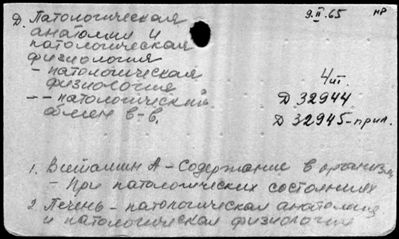 Д. Патологическая
анатомия и
патологическая
физиология
- патологическая
физиология
-- патологический
обмен в-в.
9.II.65
нр
4 шт.
Д 32944
Д 32945-прил.
1. Витамин А - Содержание в организме
- При патологических состояниях
2. Печень - патологическая анатомия
и патологическая физиология